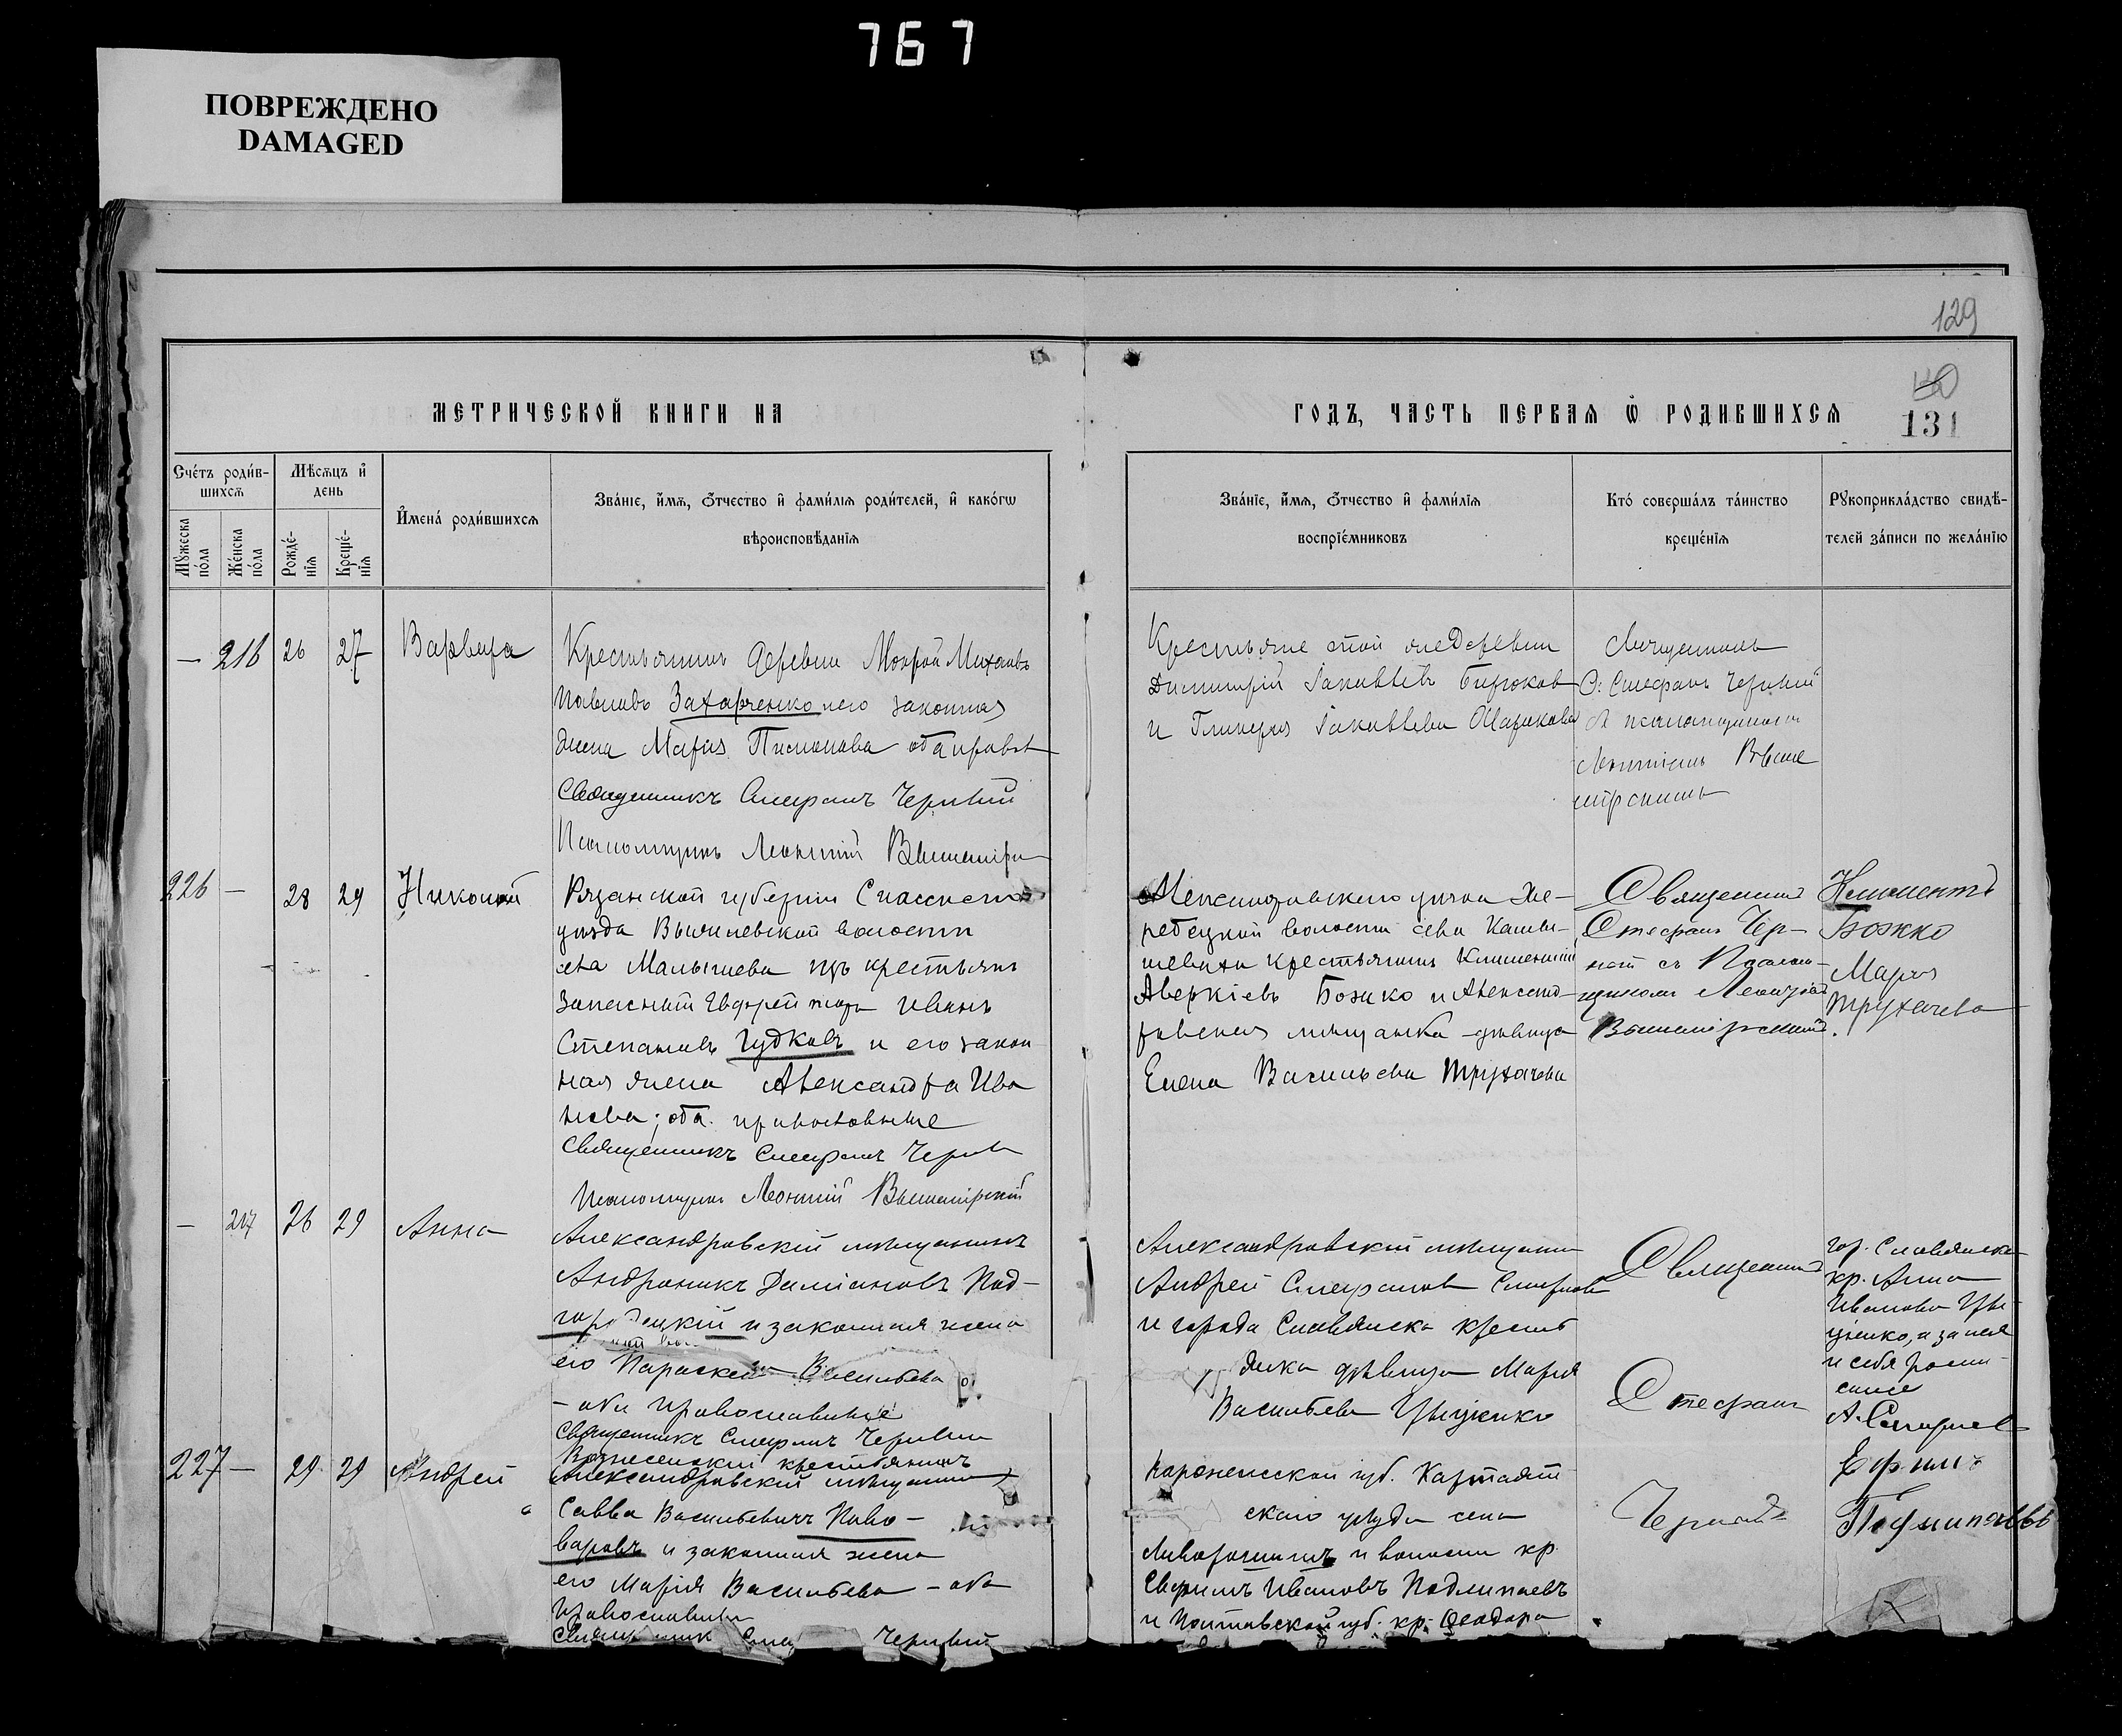 767
ПОВРЕЖДЕНО
DAMAGED
129
130
131
МЕТРИЧЕСКОЙ КНИГИ НА
ГОДЪ, ЧАСТЬ ПЕРВАѦ Ѿ РОДИВШИХСѦ
Счётъ роди́в-
шихсѧ
Мѣсѧцъ и҆
день
Мꙋжеска
по́ла
Же́нска
по́ла
Рожде́-
нїѧ
Креще́-
нїѧ
И҆мена̀ роди́вшихсѧ
Зва́нїе, и҆́мѧ, ѻ҆́тчество и҆ фами́лїѧ роди́телей, и҆ како́гѡ
вѣроисповѣ́данїѧ
Зва́нїе, и҆́мѧ, ѻ҆́тчество и҆ фами́лїѧ
воспрїе́мниковъ
Кто̀ соверша́лъ та́инство
креще́нїѧ
Рꙋкоприкла́дство свидѣ́-
телей за́писи по жела́нїю
— 216 26 27 Варвара
Крестьянинъ деревни Мокрой Михаилъ
Павловъ Захарченко и его законная
жена Марія Пимонова оба правосл
Священникъ Стефанъ Черный
Псаломщикъ Леонтій Вышемір
Крестьяне той же деревни
Димитрій Іаковлевъ Бирюков
и Гликерія Іаковлева Шарикова
Священникъ
О: Стефанъ Черный
с псаломщикомъ
Леонтіемъ Выше
мірскимъ
226 — 28 29 Николай
Рязанской губерніи Спасскаго
уѣзда Выжилевской волости
села Малышева изъ крестьянъ
запасный ефрейторъ Иванъ
Степановъ Гудковъ и его закон
ная жена Александра Ива
нова; оба православные
Священникъ Стефанъ Черный
Псаломщикъ Леонтій Вышемірскій
Александровскаго уѣзда Же-
ребецкой волости села Камы-
шевахи крестьянинъ Климентій
Аверкіевъ Божко и Александ-
ровская мѣщанка дѣвица
Елена Васильева Трухачева
Священникъ
Стефанъ Чер-
ный съ Псалом-
щикомъ Леонтіемъ
Вышемірскимъ.
Климентъ
Божко
Марія
Трухачева
— 217 26 29 Анна
Александровскій мѣщанинъ
Андроникъ Даміановъ Под-
городецкій и законная жена
его Параскева Васильева
— оба православные
Священникъ Стефанъ Черный
Александровскій мѣщанинъ
Андрей Стефановъ Смирнов
и города Славянска крестья
янка дѣвица Марія
Васильева Грыценко
Священникъ
Стефанъ
Черный
гор. Славянска
кр. Анна
Иванова Гры-
ценко, а за нея
и себя роспи-
сался
А. Смирнов
227 — 29 29 Андрей
Вознесенскій крестьянинъ
Александровскій мѣщанинъ
Савва Васильевичъ Пиво-
варовъ и законная жена
его Марія Васильева — оба
Православные
Черный
Воронежской губ.
скаго уѣзда села
и волости кр.
Ефимъ Ивановъ Подлипаевъ
и Полтавской губ. кр. Ѳеодора
Ефимъ
Подлипаевъ